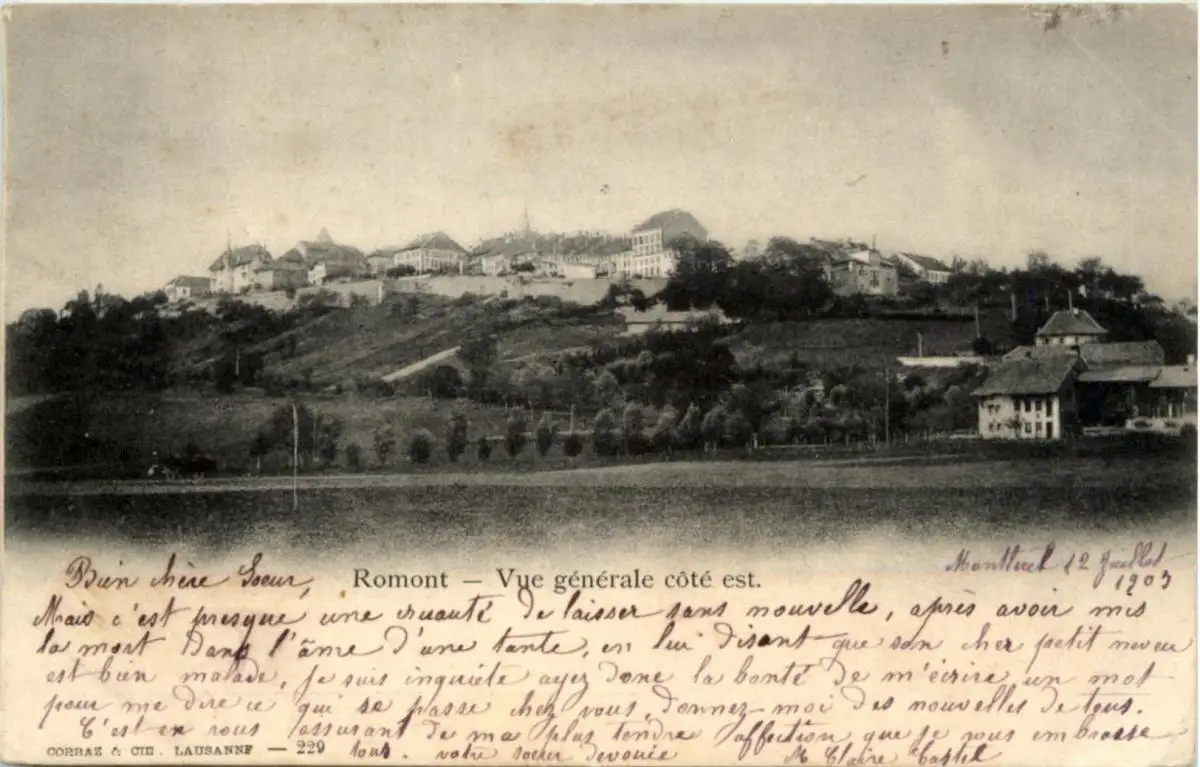 Romont — Vue générale côté est.
12 Juillet
1903
Bien chère Soeur,
Mais c'est presque une cruauté de laisser sans nouvelle, après avoir mis
la mort dans l'âme d'une tante, en lui disant que son cher petit neveu
est bien malade, je suis inquiète ayez donc la bonté de m'écrire un mot
pour me dire ce qui se passe chez vous, donnez-moi des nouvelles de tous.
C'est en vous assurant de ma plus tendre affection que je vous embrasse
tous. votre soeur dévouée M. Claire Castel
CORBAZ & CIE. LAUSANNE — 229